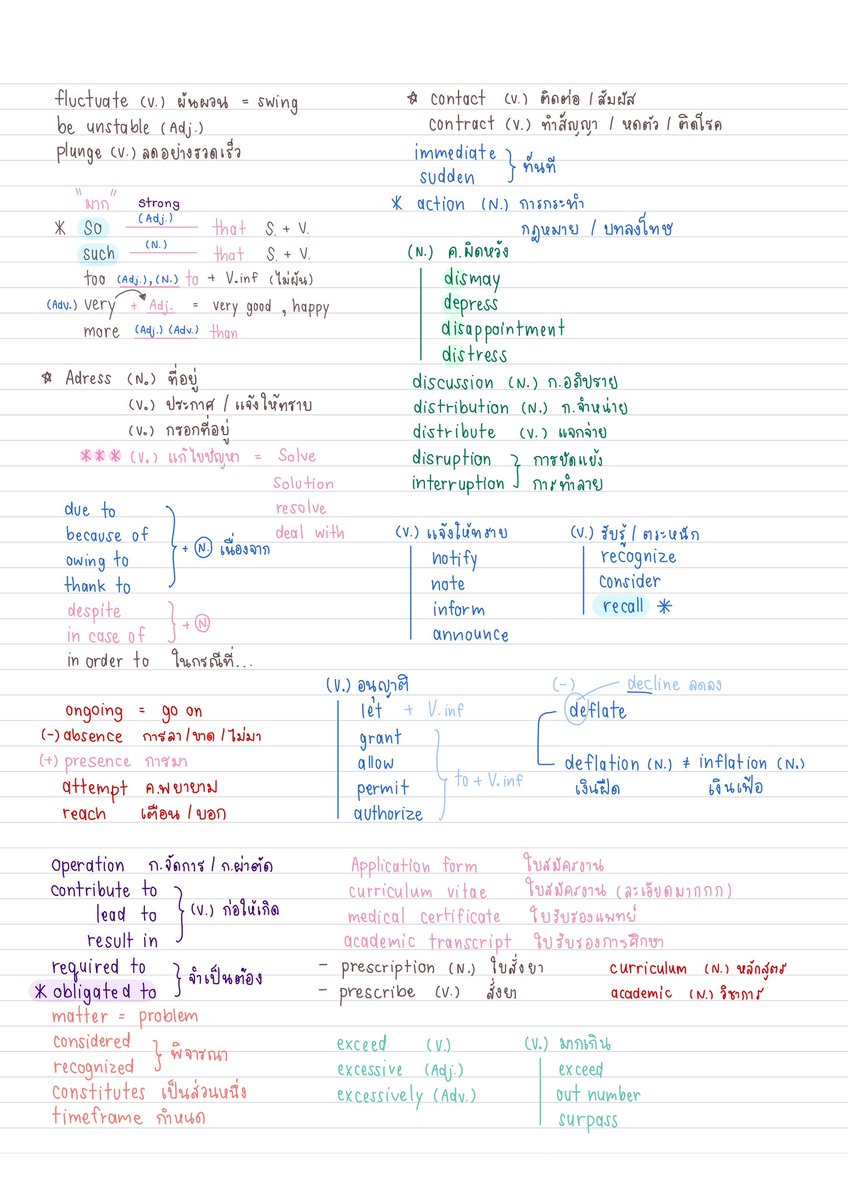 fluctuate (V.) ผันผวน = swing
be unstable (Adj.)
plunge (V.) ลดอย่างรวดเร็ว
"มาก" strong
* So (Adj.) that S. + V.
such (N.) that S. + V.
too (Adj.), (N.) to + V.inf (ไม่ผัน)
(Adv.) very + Adj. = very good , happy
more (Adj.) (Adv.) than
☆ Adress (N.) ที่อยู่
(V.) ประกาศ / แจ้งให้ทราบ
(V.) กรอกที่อยู่
*** (V.) แก้ไขปัญหา = Solve
Solution
resolve
deal with
due to
because of
owing to
thank to
+ (N.) เนื่องจาก
despite
in case of
+ (N)
in order to ในกรณีที่...
ongoing = go on
(-) absence การลา / ขาด / ไม่มา
(+) presence การมา
attempt ค.พยายาม
reach เตือน / บอก
☆ contact (V.) ติดต่อ / สัมผัส
contract (V.) ทำสัญญา / หดตัว / ติดโรค
immediate
sudden
ทันที
* action (N.) การกระทำ
กฎหมาย / บทลงโทษ
(N.) ค.ผิดหวัง
dismay
depress
disappointment
distress
discussion (N.) ก.อภิปราย
distribution (N.) ก.จำหน่าย
distribute (V.) แจกจ่าย
disruption การขัดแย้ง
interruption การทำลาย
(V.) แจ้งให้ทราบ
notify
note
inform
announce
(V.) รับรู้ / ตระหนัก
recognize
consider
recall *
(V.) อนุญาติ
let + V.inf
grant
allow
permit
authorize
to + V.inf
(-) decline ลดลง
deflate
deflation (N.) ≠ inflation (N.)
เงินฝืด เงินเฟ้อ
operation ก.จัดการ / ก.ผ่าตัด
contribute to
lead to
result in
(V.) ก่อให้เกิด
required to
* obligated to
จำเป็นต้อง
matter = problem
considered
recognized
พิจารณา
constitutes เป็นส่วนหนึ่ง
timeframe กำหนด
Application form ใบสมัครงาน
curriculum vitae ใบสมัครงาน (ละเอียดมากกก)
medical certificate ใบรับรองแพทย์
academic transcript ใบรับรองการศึกษา
- prescription (N.) ใบสั่งยา
- prescribe (V.) สั่งยา
curriculum (N.) หลักสูตร
academic (N.) วิชาการ
exceed (V.)
excessive (Adj.)
excessively (Adv.)
(V.) มากเกิน
exceed
out number
surpass